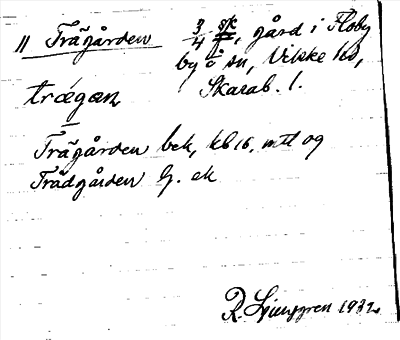 11 Trägården 3/4 sk f, gård i Floby
by o sn, Vilske hd,
trægæn Skarab. l.
Trägården bek, kb 16, mtl og
Trädgården G. ek
R. Ljunggren 1932